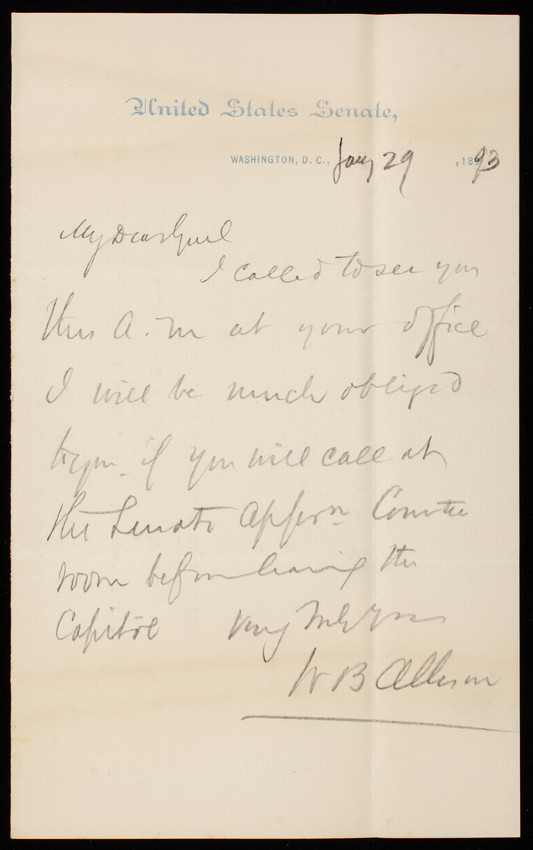 United States Senate,
WASHINGTON, D. C., Jany 29, 1893
My Dear Genl
I called to see you
this A.M at your office
I will be much obliged
to you if you will call at
the Senate Appron Comtee
room before leaving the
Capitol Very Truly Yours
W B Allison